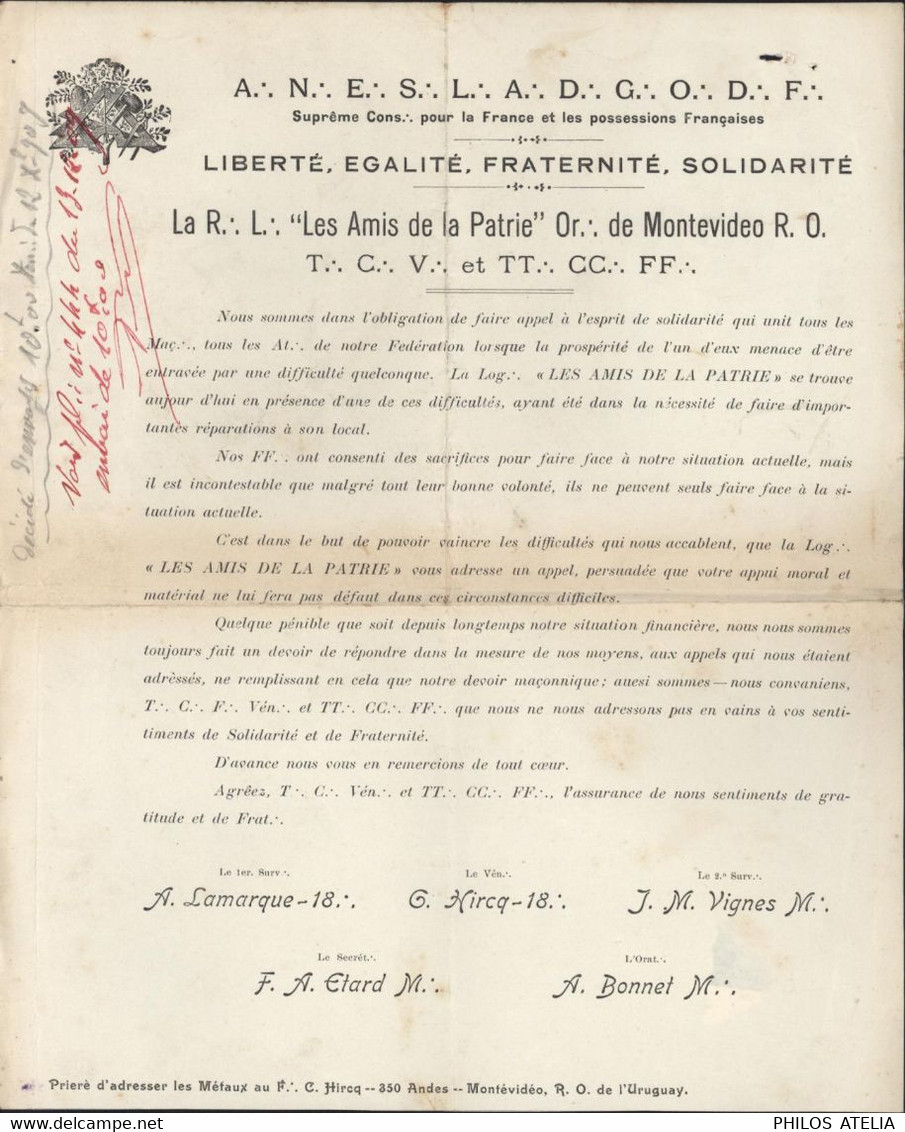 A∴ N∴ E∴ S∴ L∴ A∴ D∴ G∴ O∴ D∴ F∴
Suprême Cons∴ pour la France et les possessions Françaises
LIBERTÉ, EGALITÉ, FRATERNITÉ, SOLIDARITÉ
La R∴ L∴ "Les Amis de la Patrie" Or∴ de Montevideo R. O.
T∴ C∴ V∴ et TT∴ CC∴ FF∴
Nous sommes dans l'obligation de faire appel à l'esprit de solidarité qui unit tous les
Maç∴, tous les At∴ de notre Fedération lorsque la prospérité de l'un d'eux menace d'être
entravée par une difficulté quelconque. La Log∴ « LES AMIS DE LA PATRIE » se trouve
aujour d'hui en présence d'une de ces difficultés, ayant été dans la nécessité de faire d'impor-
tantes réparations à son local.
Nos FF∴ ont consenti des sacrifices pour faire face à notre situation actuelle, mais
il est incontestable que malgré tout leur bonne volonté, ils ne peuvent seuls faire face à la si-
tuation actuelle.
C'est dans le but de pouvoir vaincre les difficultés qui nous accablent, que la Log∴
« LES AMIS DE LA PATRIE » vous adresse un appel, persuadée que votre appui moral et
matérial ne lui fera pas défaut dans ces circonstances difficiles.
Quelque pénible que soit depuis longtemps notre situation financière, nous nous sommes
toujours fait un devoir de répondre dans la mesure de nos moyens, aux appels qui nous étaient
adréssés, ne remplissant en cela que notre devoir maçonnique; auesi sommes—nous convaniens,
T∴ C∴ F∴ Vén∴ et TT∴ CC∴ FF∴ que nous ne nous adressons pas en vains à vos senti-
timents de Solidarité et de Fraternité.
D'avance nous vous en remercions de tout cœur.
Agrêez, T∴ C∴ Vén∴ et TT∴ CC∴ FF∴, l'assurance de nous sentiments de gra-
titude et de Frat∴
Le 1er. Surv∴ Le Vén∴ Le 2.º Surv∴
A. Lamarque-18∴ G. Hircq-18∴ J. M. Vignes M∴
Le Secrét∴ L'Orat∴
F. A. Etard M∴ A. Bonnet M∴
Prierè d'adresser les Métaux au F∴ C. Hircq -- 350 Andes -- Montévidéo, R. O. de l'Uruguay.
PHILOS ATELIA